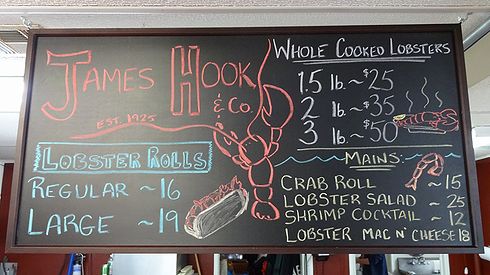 JAMES HOOK
& Co.
EST. 1925
LOBSTER ROLLS
REGULAR ~16
LARGE ~19
WHOLE COOKED LOBSTERS
1.5 lb. ~ $25
2 lb. ~ $35
3 lb. ~ $50
MAINS
CRAB ROLL ~ 15
LOBSTER SALAD ~ 25
SHRIMP COCKTAIL ~ 12
LOBSTER MAC N' CHEESE 18